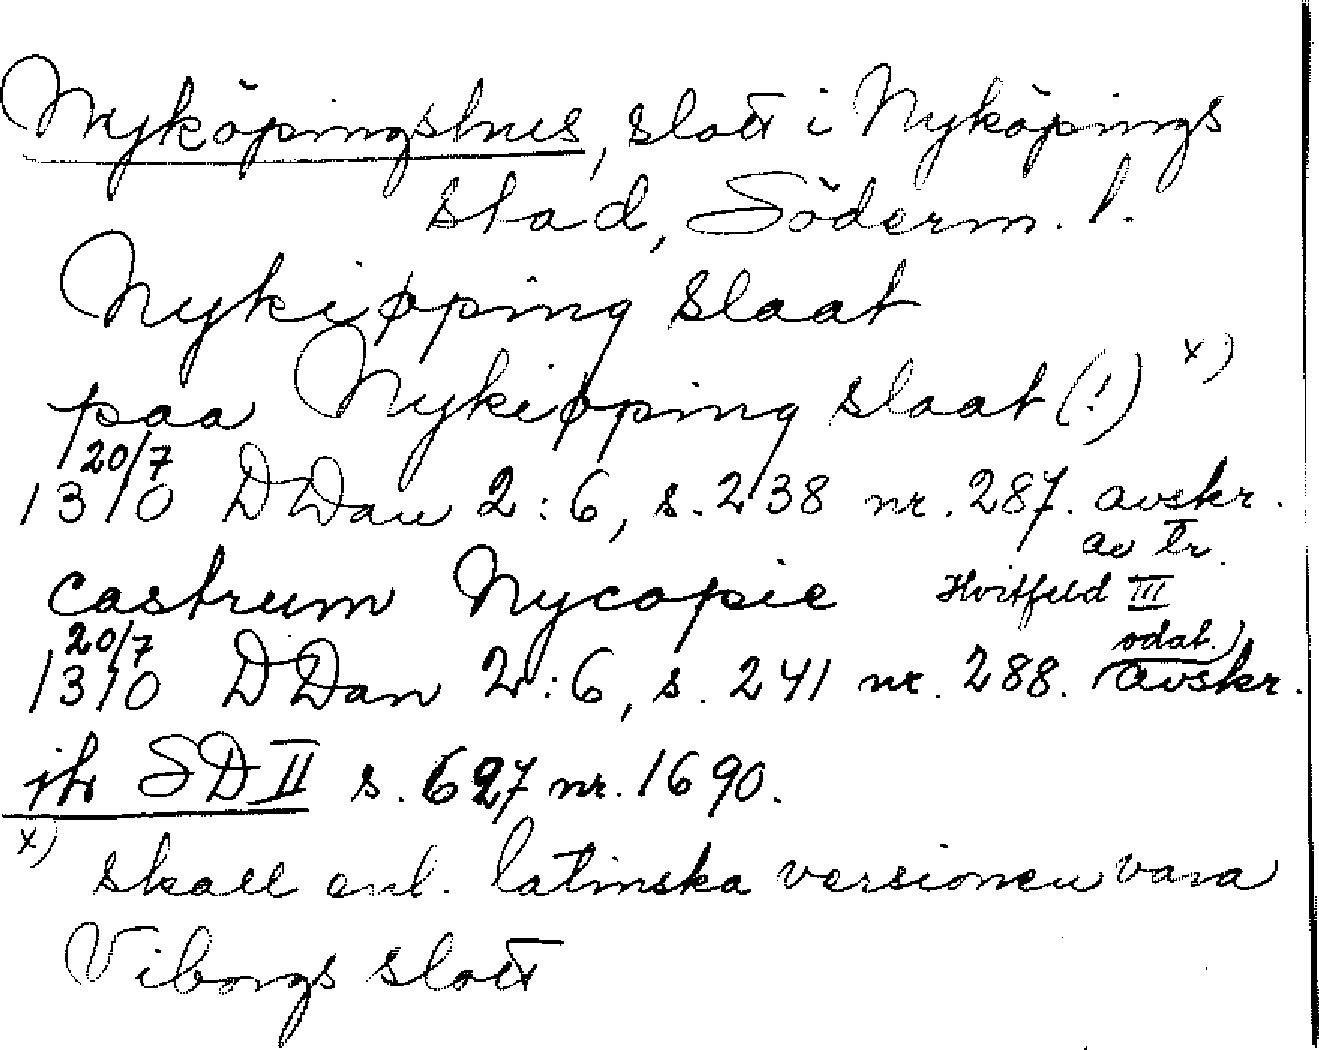 Nyköpingshus, slott i Nyköpings
stad, Söderm. l.
Nykiøping slaat
paa Nykiøping slaat (!) x)
20/7
1310 DDan 2:6, s. 238 nr. 287. avskr.
av tr.
castrum Nycopie Hvitfeld III
20/7 odat.)
1310 DDan 2:6, s. 241 nr. 288. avskr.
jfr SD II s. 627 nr. 1690.
x) skall enl. latinska versionen vara
Viborgs slott